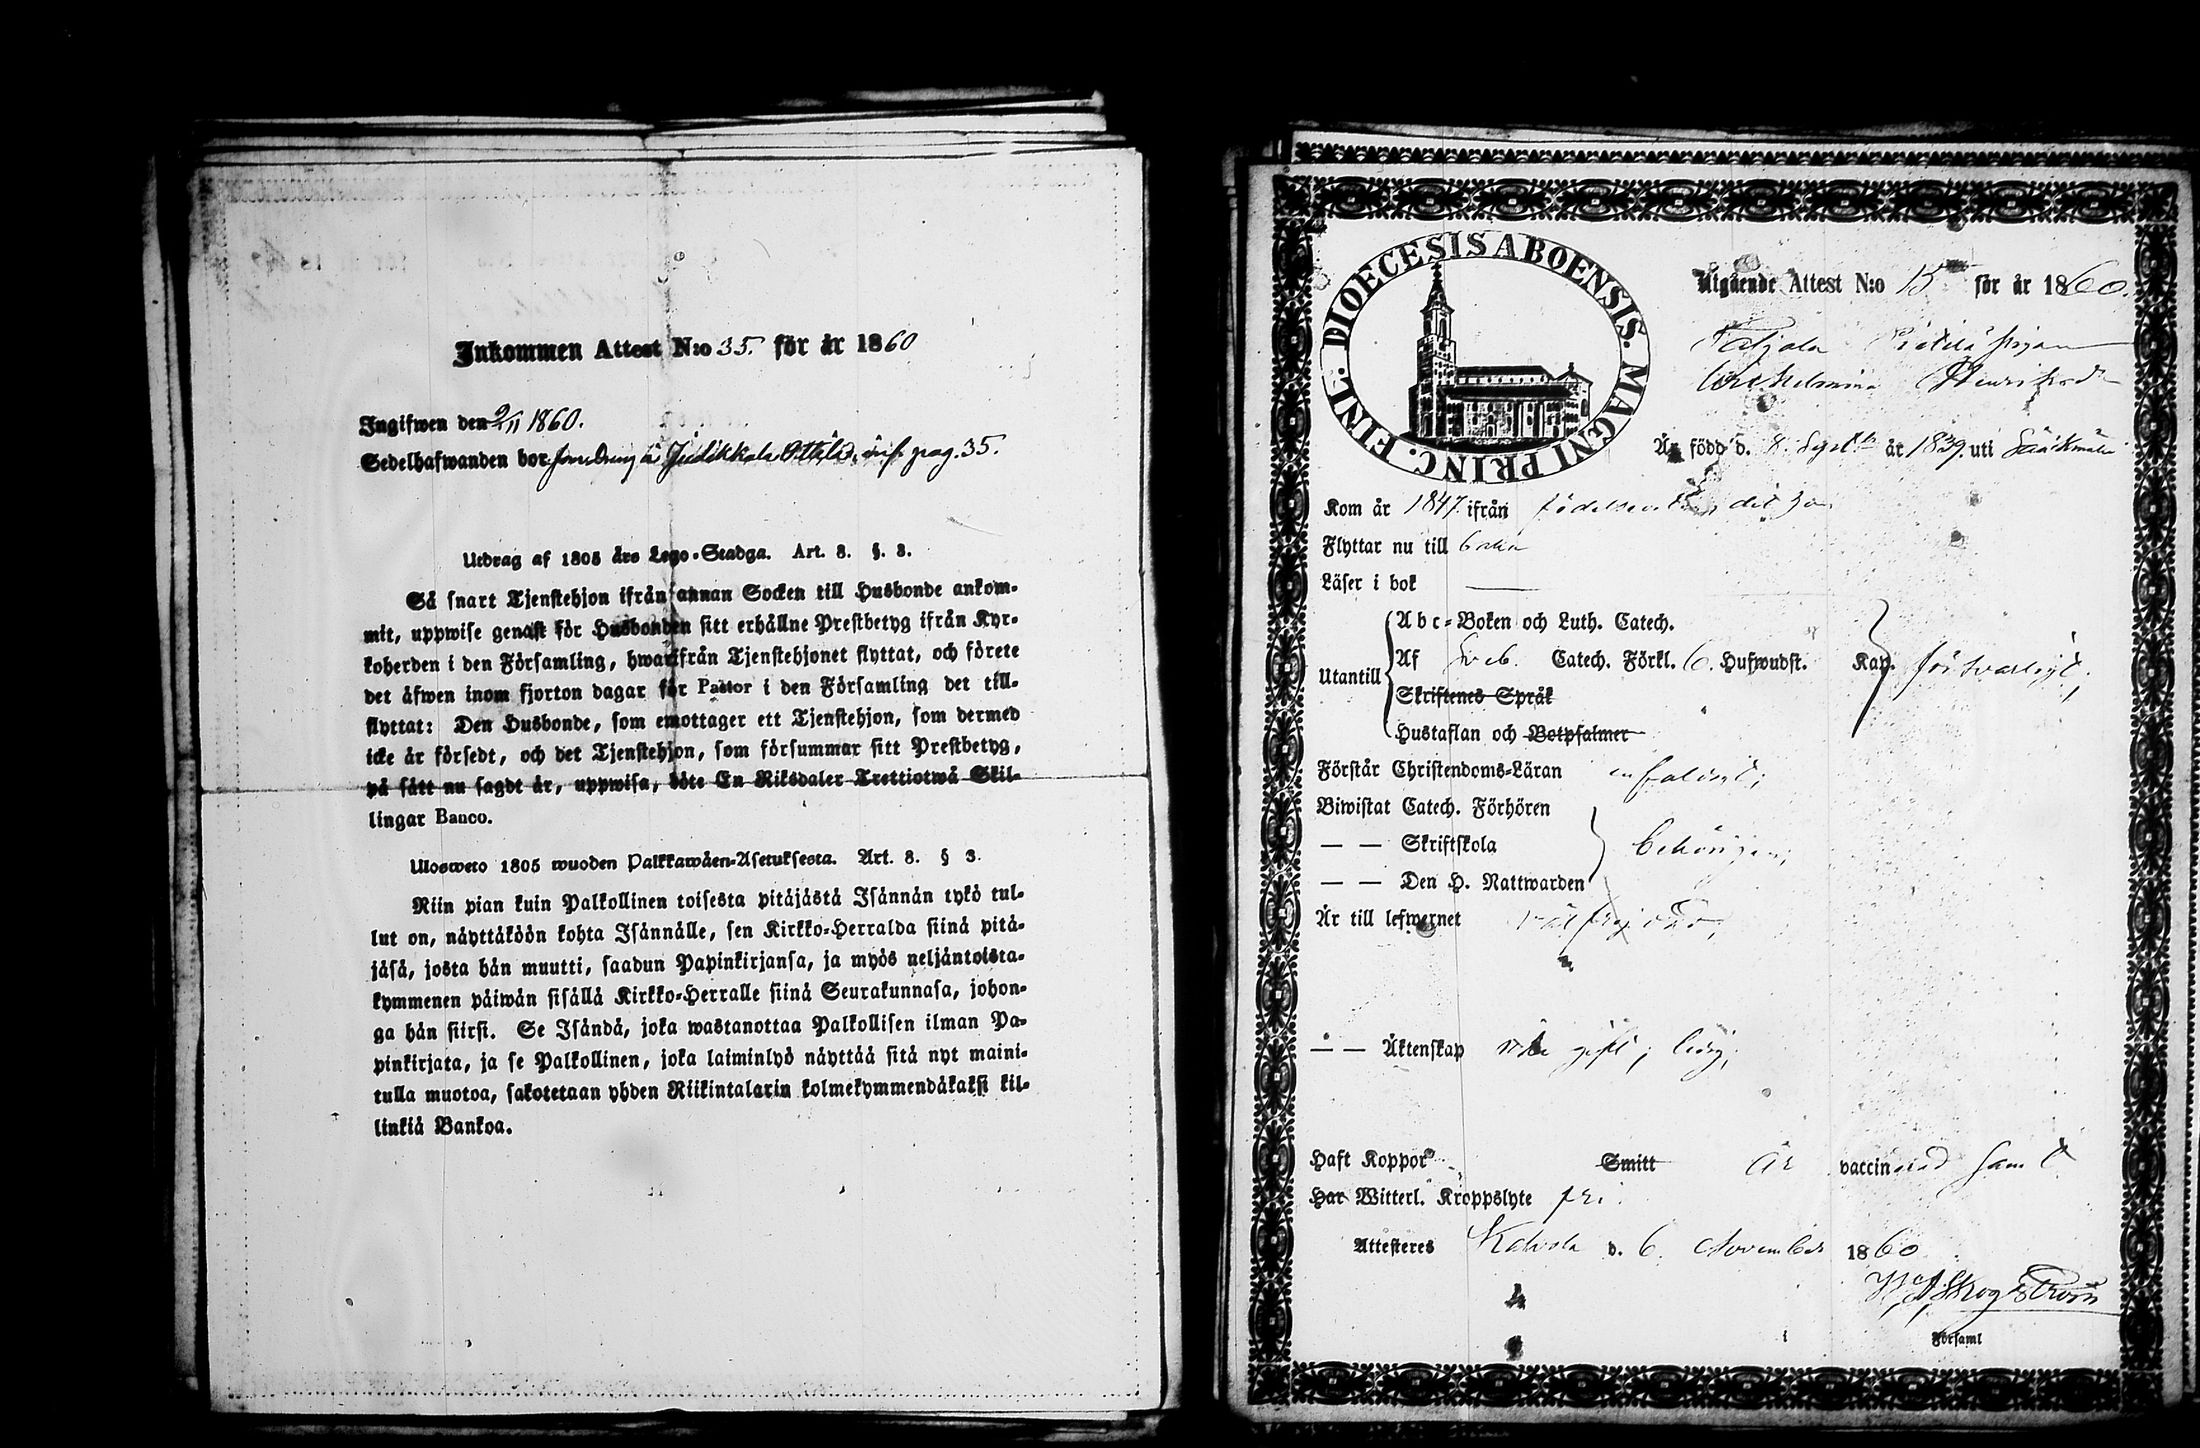 Inkommen Attest N:o 35. för år 1860
Ingifwen den 9/11 1860.
Sedelhafwanden bor å pag. 35.
Utdrag af 1805 års Lego-Stadga. Art. 8. §. 3.
Så snart Tjenstehjon ifrån annan Socken till Husbonde ankom-
mit, uppwise genast för Husbonden sitt erhållne Prestbetyg ifrån Kyr-
koherden i den Församling, hwarifrån Tjenstehjonet flyttat, och förete
det äfwen inom fjorton dagar för Pastor i den Församling det till-
flyttat: Den Husbonde, som emottager ett Tjenstehjon, som dermed
icke är försedt, och det Tjenstehjon, som försummar sitt Prestbetyg,
på sätt nu sagdt är, uppwisa, böte En Riksdaler Trettiotwå Skil-
lingar Banco.
Ulosweto 1805 wuoden Palkkawäen-Asetuksesta. Art. 8. § 3.
Niin pian kuin Palkollinen toisesta pitäjästä Isännän tykö tul-
lut on, näyttäköön kohta Isännälle, sen Kirkko-Herralda siinä pitä-
jäsä, josta hän muutti, saadun Papinkirjansa, ja myös neljäntoista-
kymmenen päiwän sisällä Kirkko-Herralle siinä Seurakunnasa, johon-
ga hän siirsi. Se Isändä, joka wastanottaa Palkollisen ilman Pa-
pinkirjata, ja se Palkollinen, joka laiminlyö näyttää sitä nyt maini-
tulla muotoa, sakotetaan yhden Riikintalarin kolmekymmendäkaksi kil-
linkiä Bankoa.
DIOECESIS ABOENSIS. MAGNI PRINC. FINL.
Utgående Attest N:o 15 för år 1860.
Är född d. 8. Sept. år 1839. uti Sääksmäki
Kom år 1847. ifrån
Flyttar nu till
Läser i bok —
Utantill
Abc-Boken och Luth. Catech.
Af Sveb. Catech. Förkl. 6. Hufwudst. Kap. försvarligt;
Skriftenes Språk
Hustaflan och Botpsalmer
Förstår Christendoms-Läran enfaldigt;
Biwistat Catech. Förhören
— — Skriftskola behörigen;
— — Den H. Nattwarden
Är till lefwernet välfrejdad,
— — Äktenskap icke gift; ledig;
Haft Koppor Smitt är vaccinerad samt
Har Witterl. Kroppslyte fri.
Attesteres Kalvola d. 6. November 1860
Skogström
i Församl